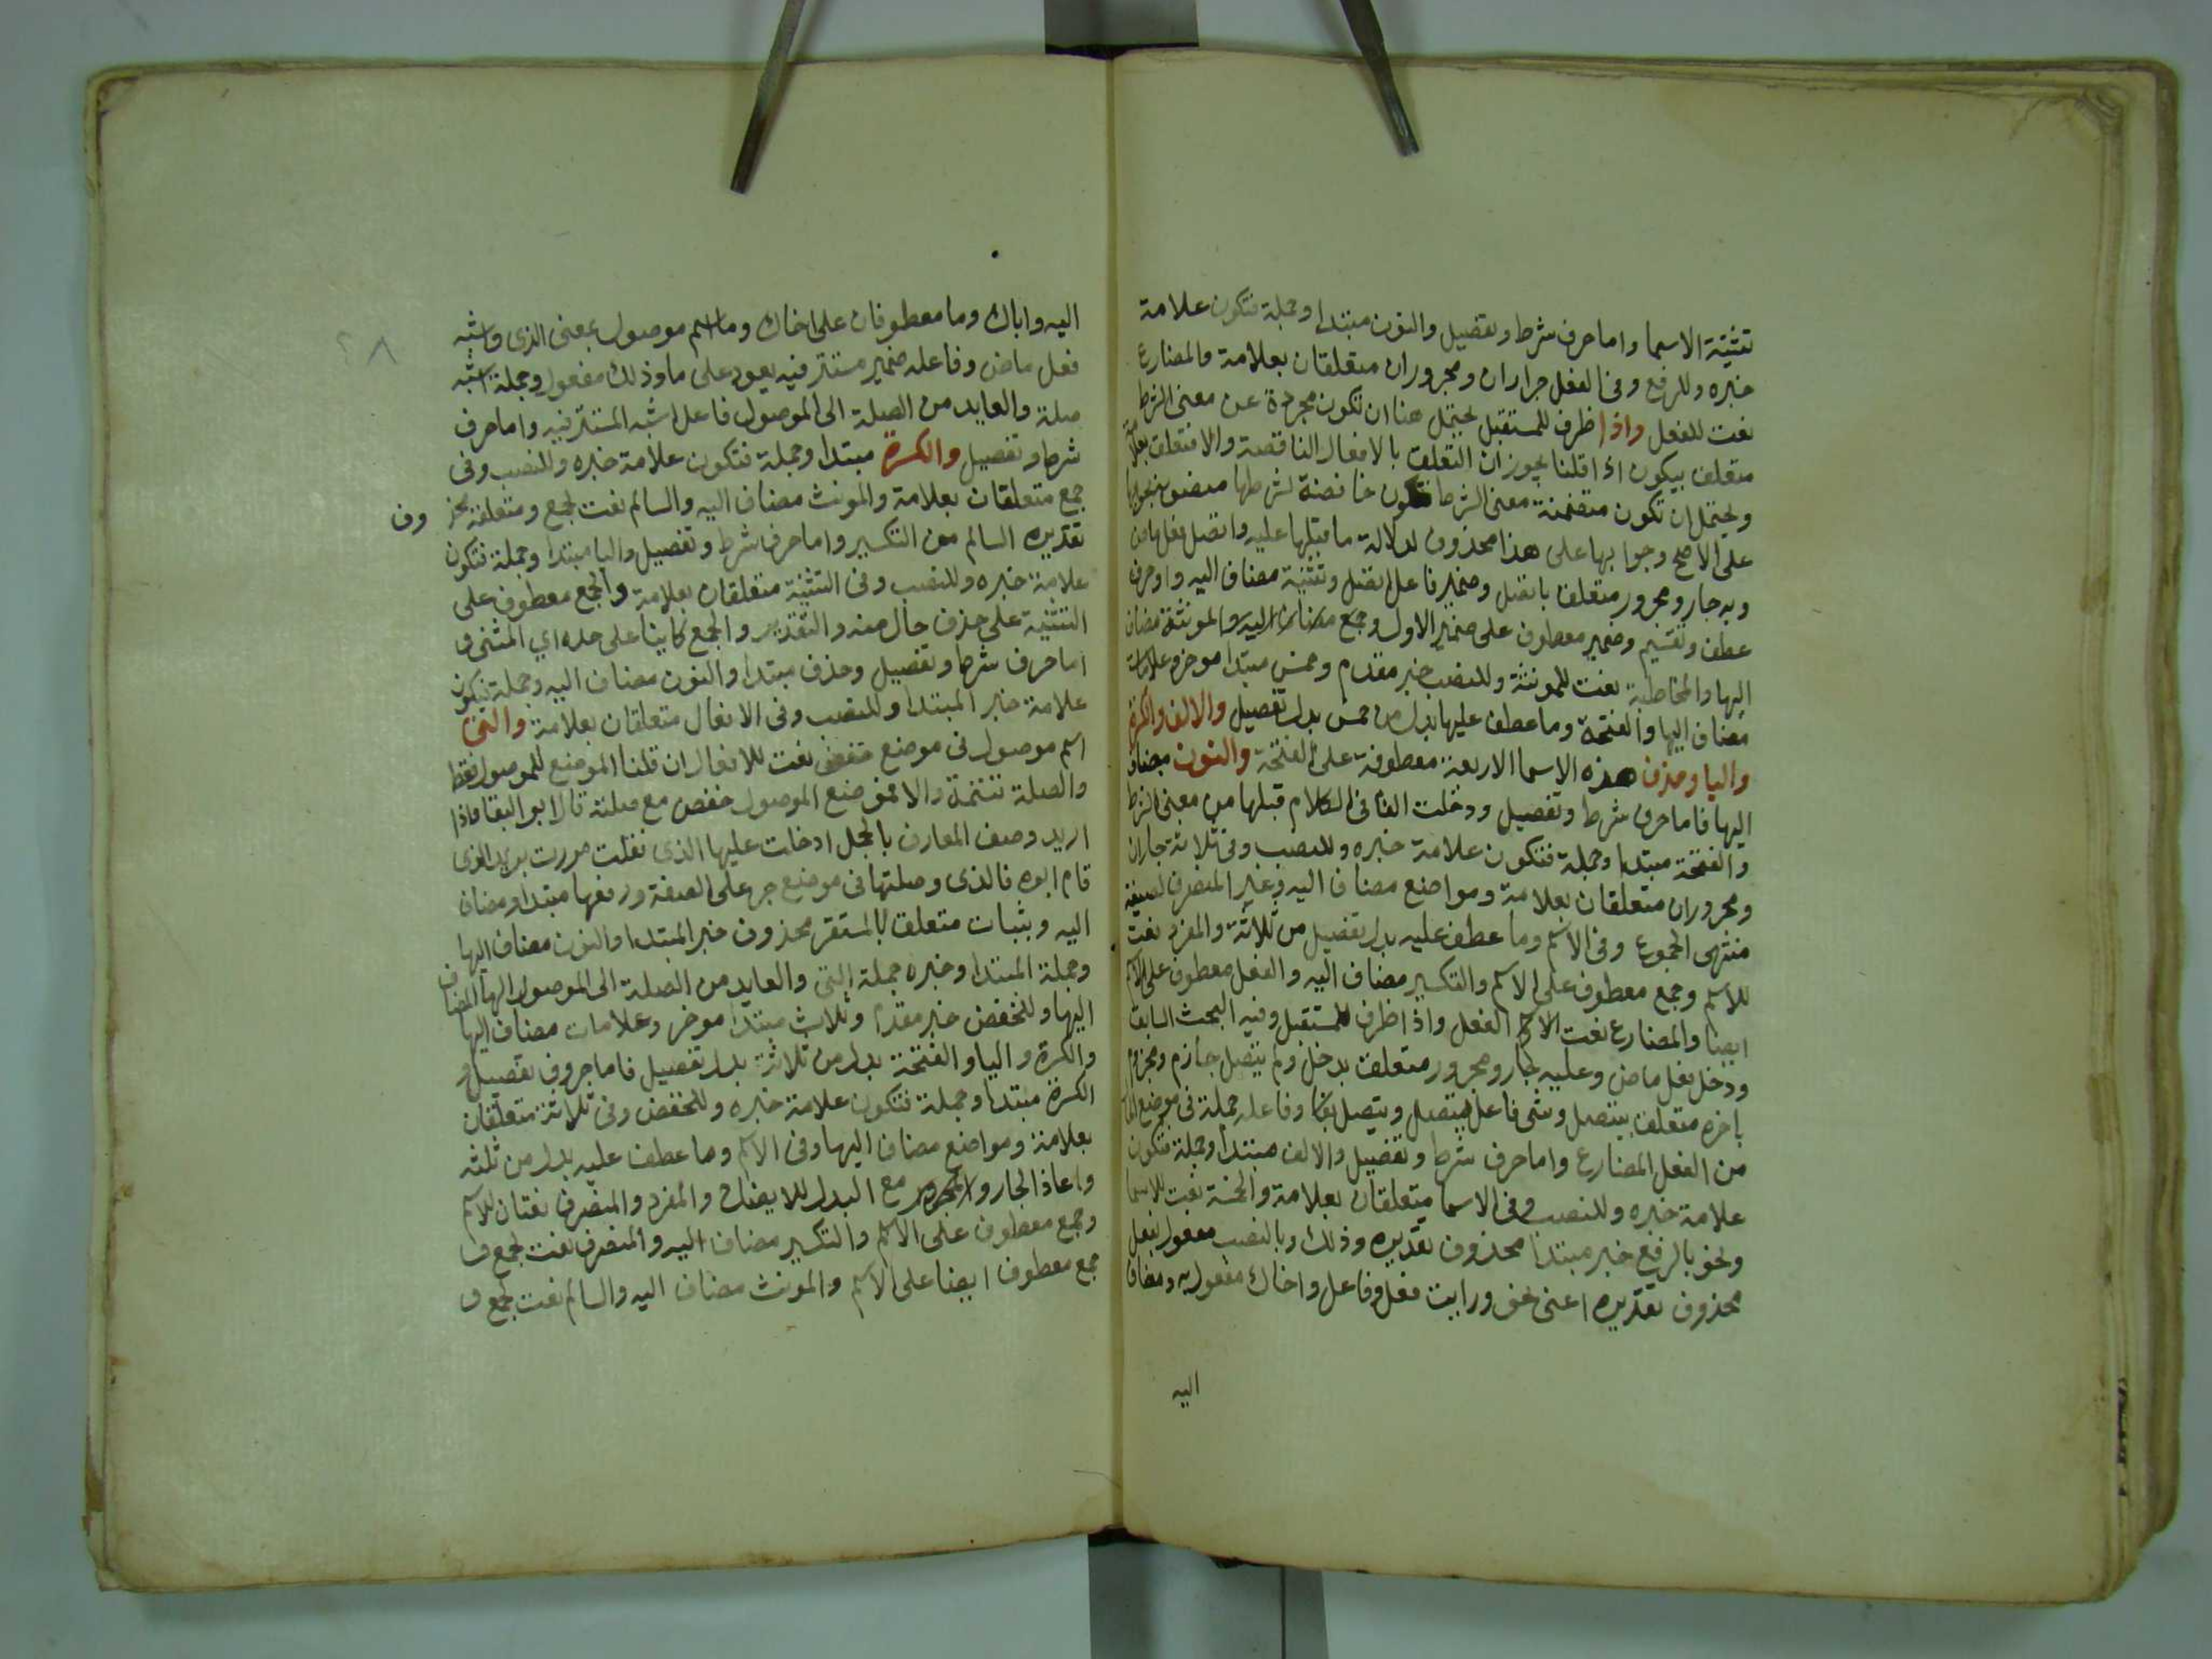 تثنية الاسما واما حرف شرط وتفصيل والنون مبتدا وجملة فتكون علامة
خبره وللرفع وفى الفعل جراران ومجروران متعلقان بعلامة والمضارع
نعت للفعل واذا ظرف للمستقبل يحتمل هنا ان تكون مجردة عن معنى الشرط
متعلق بيكون اذا قلنا يجوز ان التعلق بالافعال الناقصة والا فتعلق بعلامة
ويحتمل ان تكون متضمنة معنى الشرط فتكون خافضة لشرطها منصوب بجوابها
على الاصح وجوابها على هذا محذوف لدلالة ما قبلها عليه واتصل فعل ماض
وبه جار ومجرور متعلق باتصل وضمير فاعل اتصل وتثنية مضاف اليه واو حرف
عطف وتقسيم وضمير معطوف على ضمير الاول وجمع مضاف اليه والمونثة مضاف
اليها والمخاطبة نعت للمونثة وللنصب خبر مقدم وخمس مبتدا موخر وعلامات
مضاف اليها والفتحة وما عطف عليها بدل من خمس بدل تفصيل والالف والكسرة
واليا وحذف هذه الاسما الاربعة معطوفة على الفتحة والنون مضاف
اليها فاما حرف شرط وتفصيل ودخلت الفا فى الكلام قبلها من معنى الشرط
والفتحة مبتدا وجملة فتكون علامة خبره وللنصب وفى ثلاثة جاران
ومجروران متعلقان بعلامة ومواضع مضاف اليه وغير المنصرف لصيغة
منتهى الجموع وفى الاسم وما عطف عليه بدل تفصيل من ثلاثة والمفرد نعت
للاسم وجمع معطوف على الاسم والتكسير مضاف اليه والفعل معطوف على الاسم
ايضا والمضارع نعت الفعل واذا ظرف للمستقبل وفيه البحث السابق
ودخل فعل ماض وعليه جار ومجرور متعلق بدخل ولم يتصل جازم ومجزوم
باخره متعلق بيتصل وشى فاعل يتصل ويتصل وفاعله جملة فى موضع الحال
من الفعل المضارع واما حرف شرط وتفصيل والالف مبتدا وجملة فتكون
علامة خبره وللنصب وفى الاسما متعلقان بعلامة والخمسة نعت للاسما
ونحو بالرفع خبر مبتدا محذوف تقديره وذلك وبالنصب مفعول لفعل
محذوف تقديره اعنى نحو ورايت فعل وفاعل واخاك مفعول به ومضاف
اليه
اليه واباك وما معطوفان على اخاك وما اسم موصول بمعنى الذى واشبه
فعل ماض وفاعله ضمير مستتر فيه يعود على ما وذلك مفعول وجملة اشبه
صلة والعايد من الصلة الى الموصول فاعل اشبه المستتر فيه واما حرف
شرط وتفصيل والكسرة مبتدا وجملة فتكون علامة خبره وللنصب وفى
جمع متعلقان بعلامة والمونث مضاف اليه والسالم نعت لجمع ومتعلقة محذوف
تقديره السالم من التكسير واما حرف شرط وتفصيل واليا مبتدا وجملة فتكون
علامة خبره وللنصب وفى التثنية متعلقان بعلامة والجمع معطوف على
التثنية على حذف حال منه والتقدير والجمع كاينا على حده اي المثنى و
اما حرف شرط وتفصيل وحذف مبتدا والنون مضاف اليه وجملة فيكون
علامة خبر المبتدا وللنصب وفى الافعال متعلقان بعلامة والتى
اسم موصول فى موضع خفض نعت للافعال ان قلنا الموضع للموصول فقط
والصلة تتمة والا فموضع الموصول خفض مع صلته قال ابو البقا واذا
اريد وصف المعارف بالجمل ادخلت عليها الذى نقلت مررت بزيد الذى
قام ابوه فالذى وصلتها فى موضع جر على الصفة ورفعها مبتدا ومضاف
اليه وبثبات متعلق بالمستقر محذوف خبر المبتدا والنون مضاف اليها
وجملة المبتدا وخبره جملة التى والعايد من الصلة الى الموصول الها المضاف
اليها وللخفض خبر مقدم وثلاث مبتدا موخر وعلامات مضاف اليها
والكسرة واليا والفتحة بدل من ثلاثة بدل تفصيل فاما حروف تفصيل و
الكسرة مبتدا وجملة فتكون علامة خبره وللخفض وفى ثلاثة متعلقان
بعلامة ومواضع مضاف اليها وفى الاسم وما عطف عليه بدل من ثلثه
واعاذ الجار والمجرور مع البدل للايضاح والمفرد والمنصرف نعتان للاسم
وجمع معطوف على الاسم والتكسير مضاف اليه والمنصرف نعت لجمع و
جمع معطوف ايضا على الاسم والمونث مضاف اليه والسالم نعت لجمع و